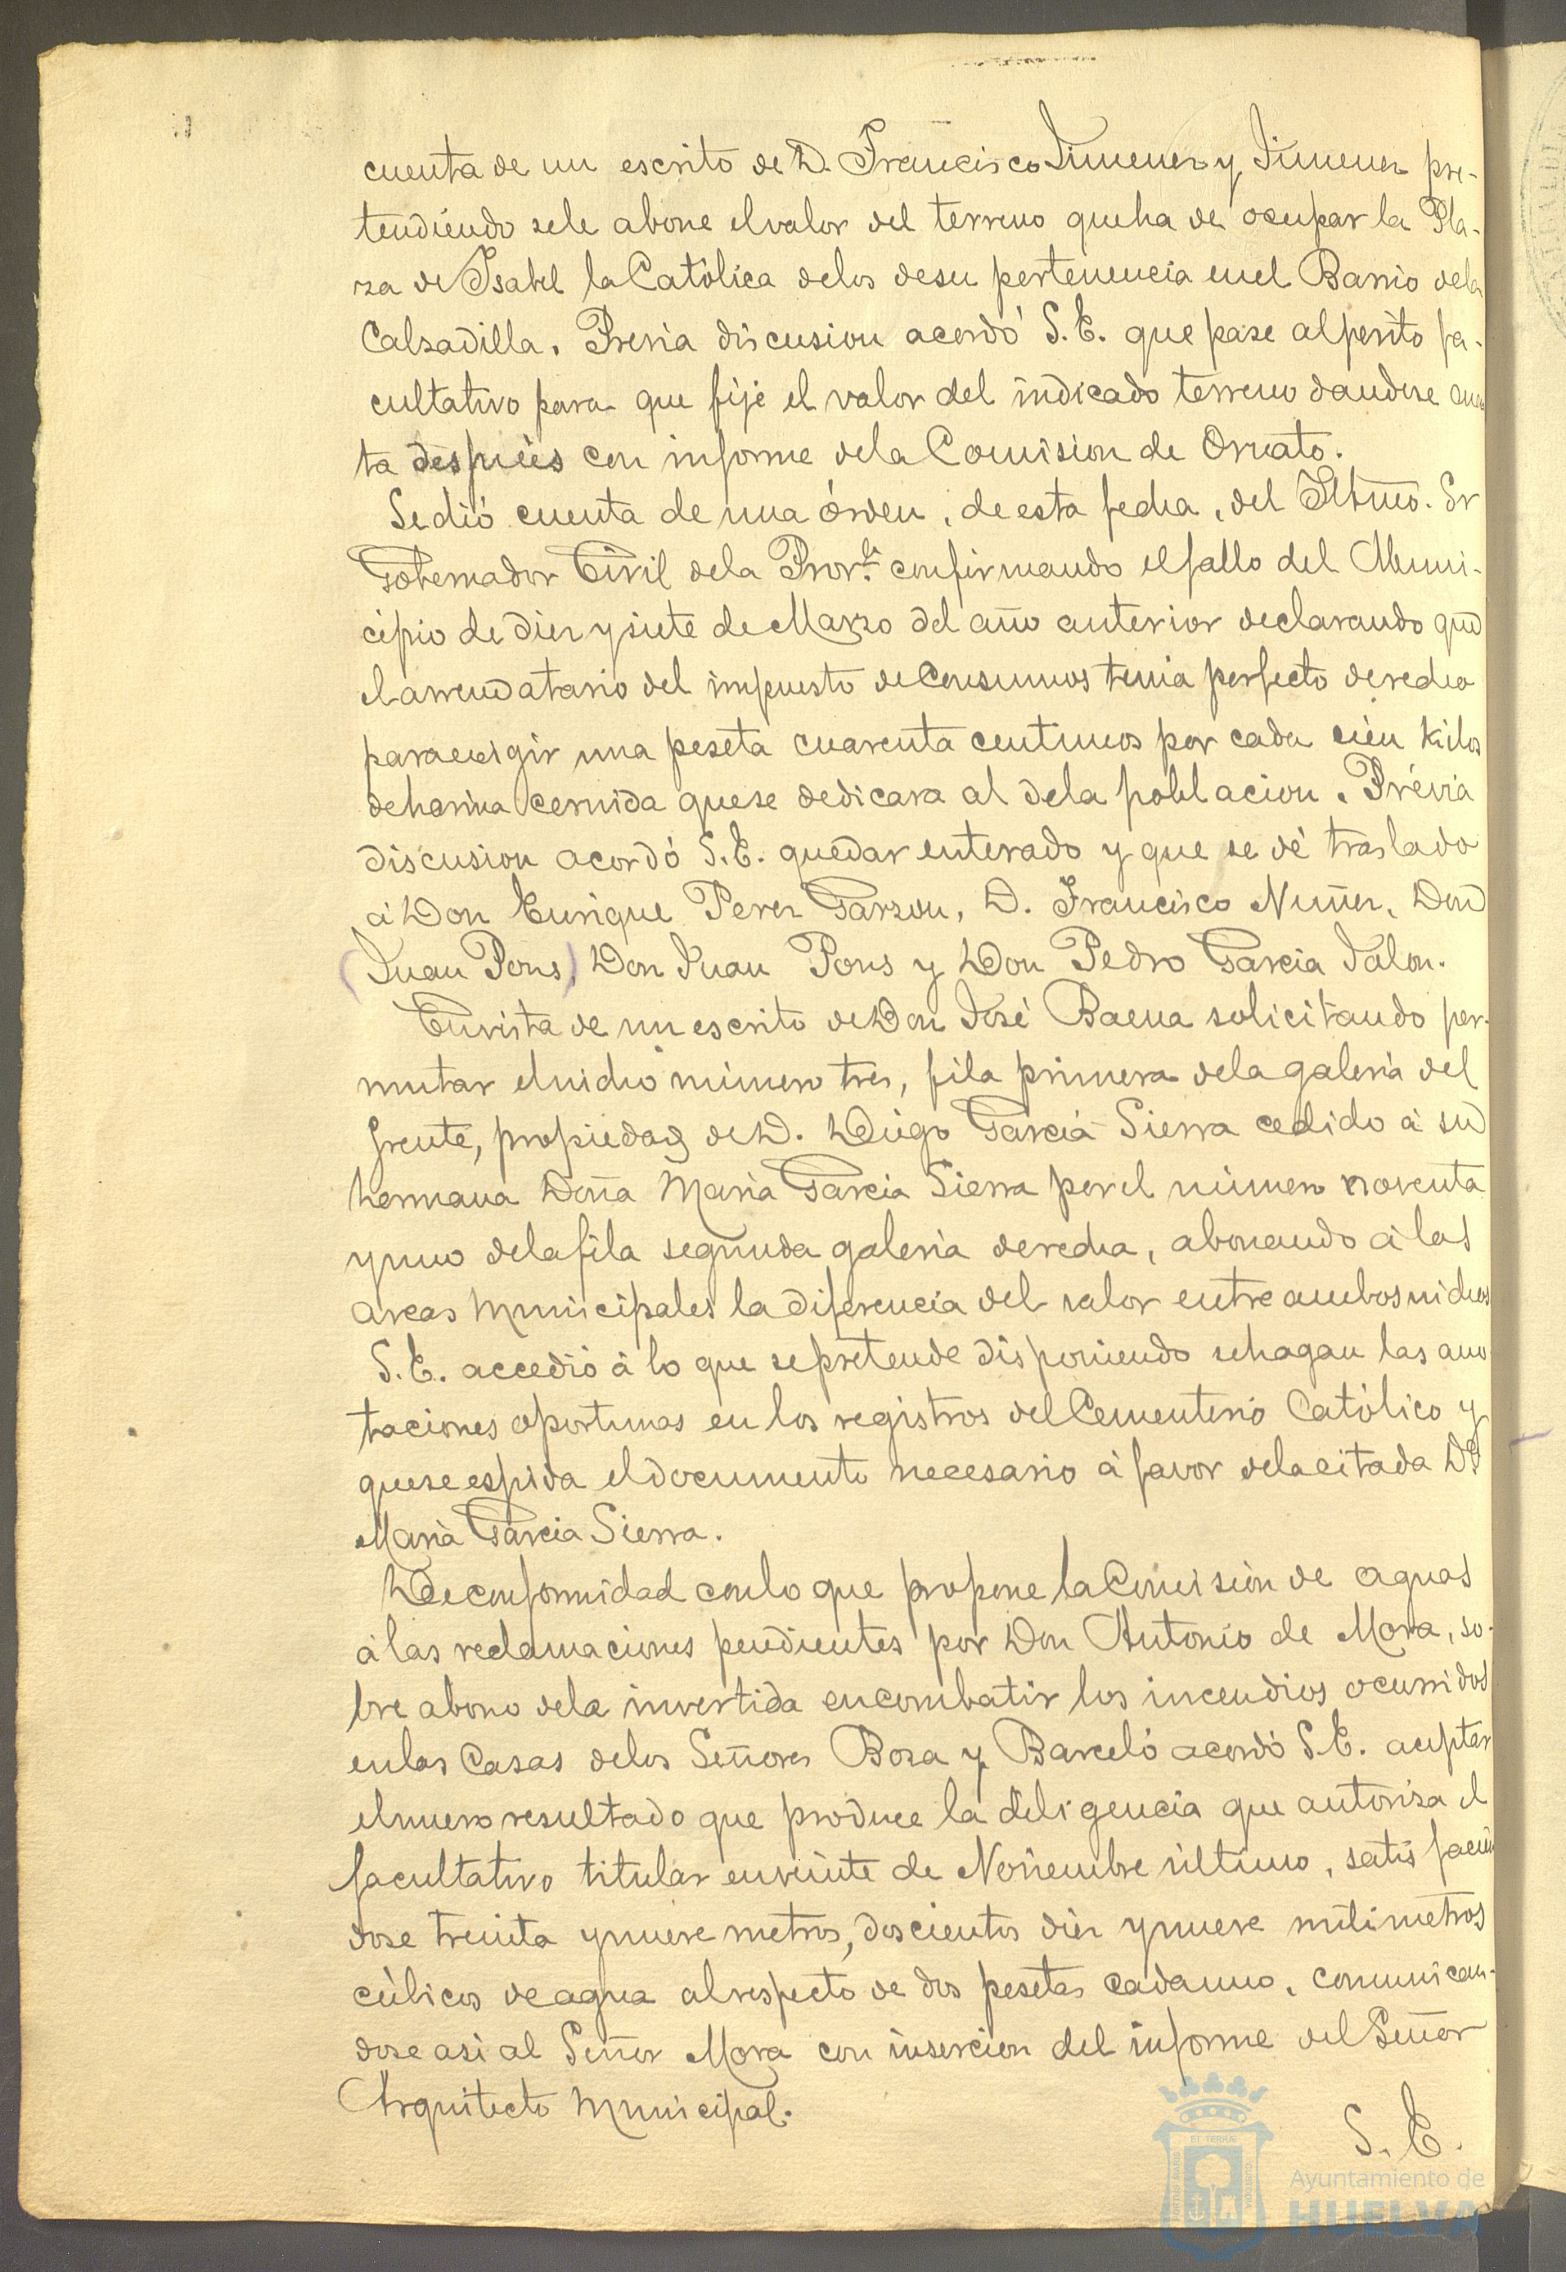 cuenta de un escrito de D. Francisco Jimenez y Jimenez pre-
tendiendo sele abone elvalor del terreno queha de ocupar la Pla-
za de Isabel la Católica delos desu pertenencia enel Barrio dela
Calzadilla. Prévia discusion acordó S.E. que pase alperito fa-
cultativo para que fije el valor del indicado terreno dandose cuen
ta despues con informe dela Comision de Ornato.
Sedió cuenta de una órden, de esta fecha, del Iltmo. Sr
Gobernador Civil dela Prov.ª confirmando elfallo del Muni-
cipio de diez y siete de Marzo del año anterior declarando que
elarrendatario del impuesto de Consumos tenia perfecto derecho
paraexigir una peseta cuarenta centimos por cada cien kilos
deharina cernida quese dedicara al dela poblacion. Prévia
discusion acordó S.E. quedar enterado y que se dé traslado
á Don Enrique Perez Garzon, D. Francisco Nuñez, Don
(Juan Pons) Don Juan Pons y Don Pedro Garcia Jalon.
Envista de un escrito de Don José Baena solicitando per-
mutar elnicho número tres, fila primera dela galeria del
frente, propiedad de D. Diego Garcia Sierra cedido á su
hermana Doña Maria Garcia Sierra por el número noventa
yuno delafila segunda galeria derecha, abonando á las
arcas Municipales la diferencia del valor entre ambosnichos
S.E. accedió á lo que sepretende disponiendo sehagan las ano
taciones oportunas en los registros del Cementerio Católico y
quese espida eldocumento necesario á favor delacitada Dª
Maria Garcia Sierra.
Deconformidad conlo que propone la Comision de aguas
á las reclamaciones pendientes por Don Antonio de Mora, so-
bre abono dela invertida encombatir los incendios ocurridos
enlas Casas delos Señores Boza y Barceló acordó S.E. aceptar
elnuevo resultado que produce la diligencia que autoriza el
facultativo titular enveinte de Noviembre último, satisfacien
dose treinta ynueve metros, doscientos diez ynueve milimetros
cúbicos deagua alrespecto de dos pesetas cadauno, comunican-
dose asi al Señor Mora con insercion del informe del Señor
Arquitecto Municipal.
S. E.
Ayuntamiento de
HUELVA